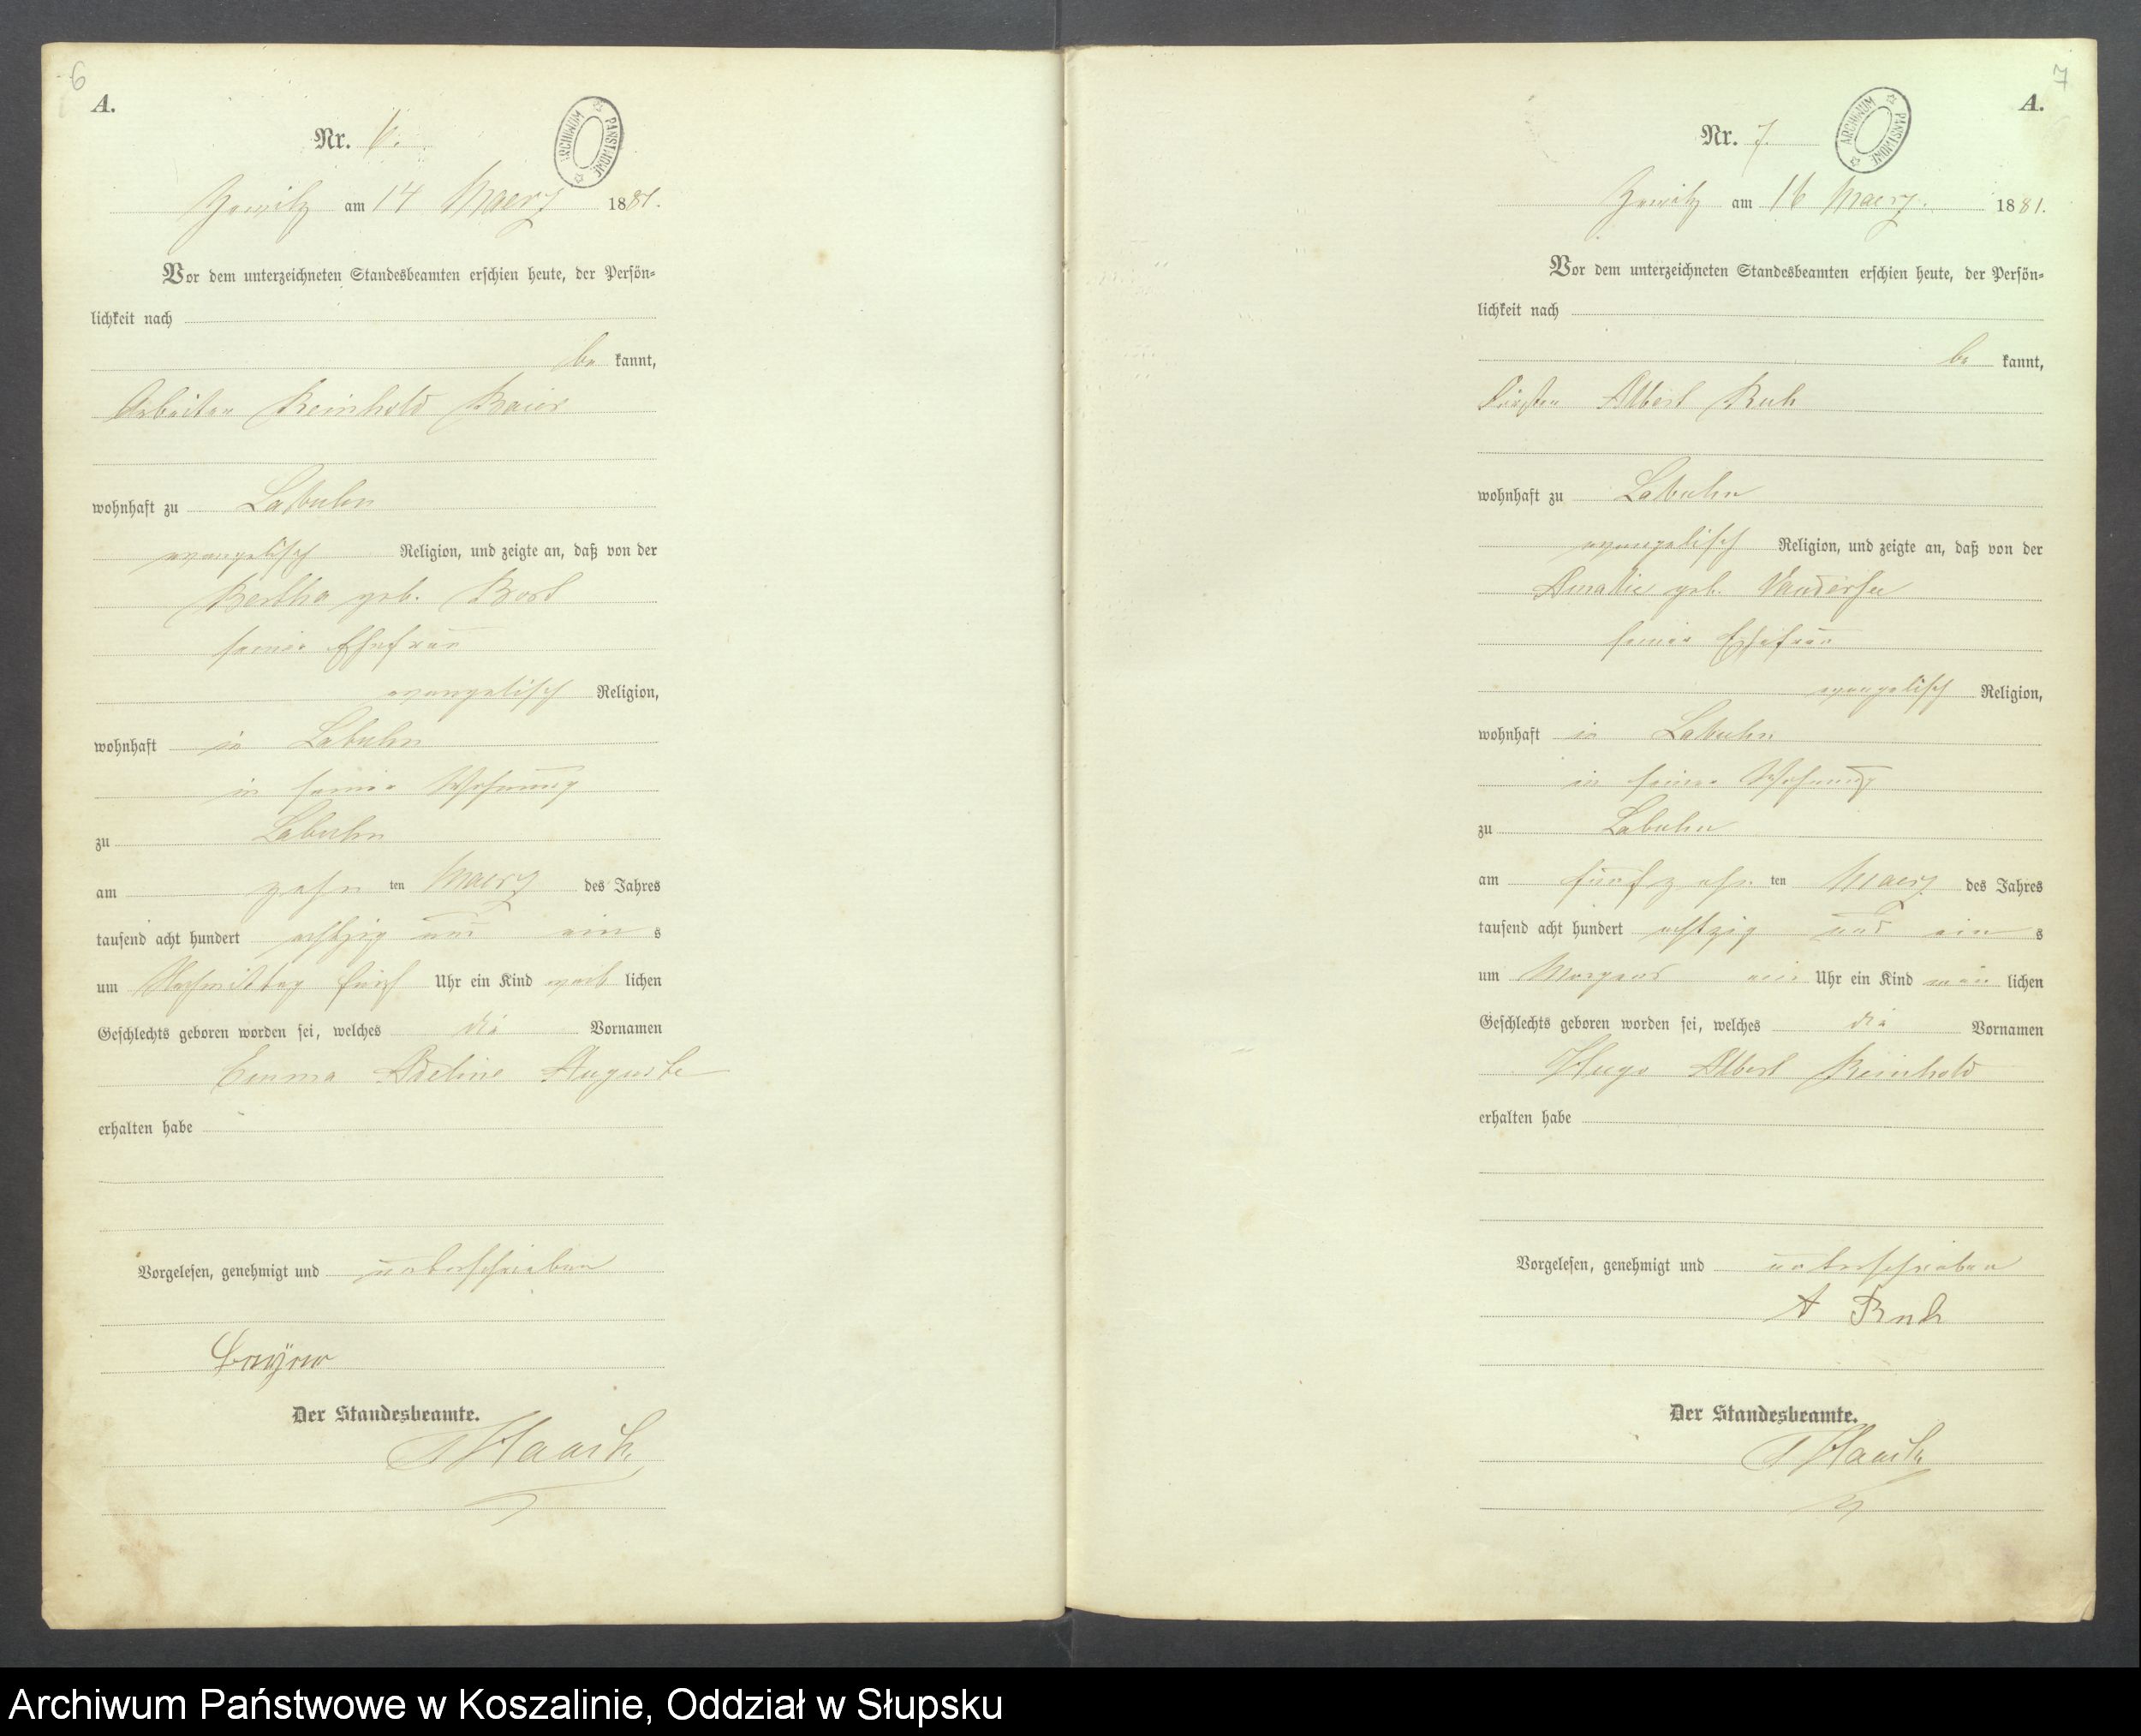 6
A.
Nr. 6.
ARCHIWUM PAŃSTWOWE
Zewitz am 14 Maerz 1881.
Vor dem unterzeichneten Standesbeamten erschien heute, der Persön-
lichkeit nach
be kannt,
Arbeiter Reinhold
wohnhaft zu Labuhn
evangelisch Religion, und zeigte an, daß von der
Bertha geb.
seiner Ehefrau
evangelisch Religion,
wohnhaft in Labuhn
in seiner Wohnung
zu Labuhn
am zehn ten Maerz des Jahres
tausend acht hundert achtzig und ein s
um Nachmittag fünf Uhr ein Kind weib lichen
Geschlechts geboren worden sei, welches die Vornamen
Emma Adeline Auguste
erhalten habe
Vorgelesen, genehmigt und unterschrieben
Der Standesbeamte.
7
A.
Nr. 7.
ARCHIWUM PAŃSTWOWE
Zewitz am 16 Maerz. 1881.
Vor dem unterzeichneten Standesbeamten erschien heute, der Persön-
lichkeit nach
be kannt,
Albert Ruh
wohnhaft zu Labuhn
evangelisch Religion, und zeigte an, daß von der
Amalie geb. Vandersee
seiner Ehefrau
evangelisch Religion,
wohnhaft in Labuhn
in seiner Wohnung
zu Labuhn
am fünfzehn ten Maerz des Jahres
tausend acht hundert achtzig und ein s
um Morgens ein Uhr ein Kind män lichen
Geschlechts geboren worden sei, welches die Vornamen
Hugo Albert Reinhold
erhalten habe
Vorgelesen, genehmigt und unterschrieben
A Ruh
Der Standesbeamte.
Archiwum Państwowe w Koszalinie, Oddział w Słupsku